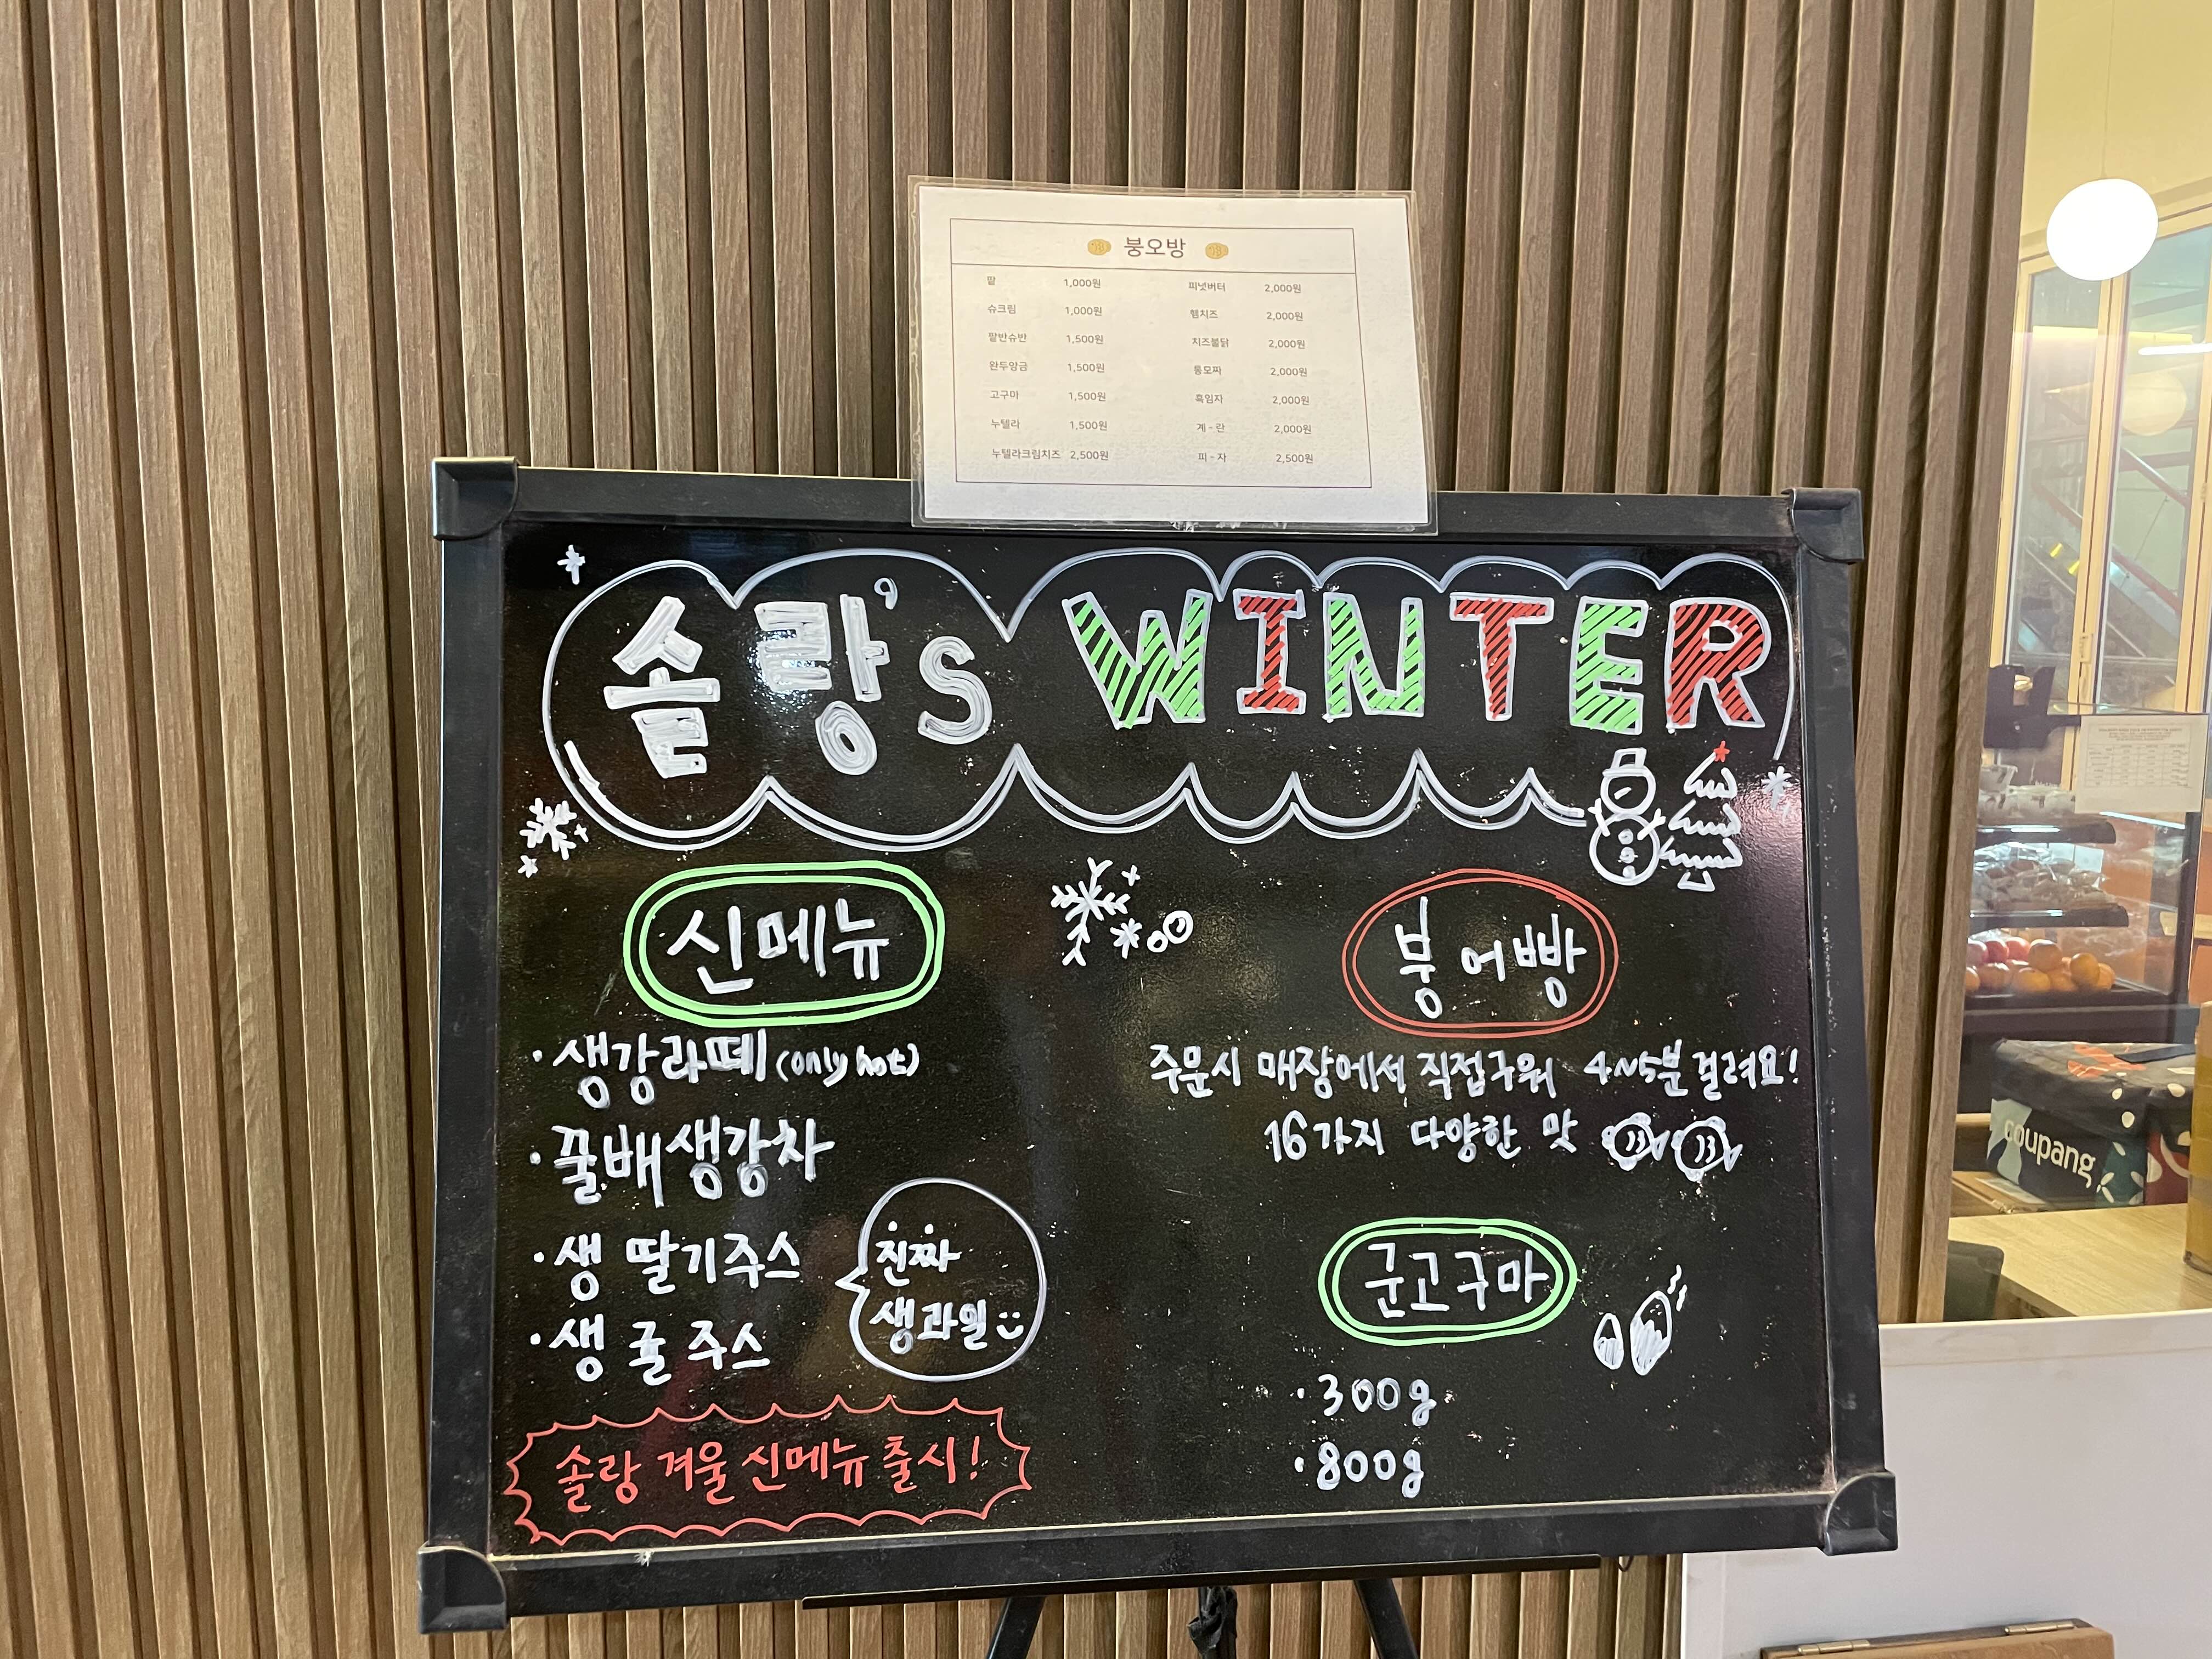 붕오방
팥 1,000원 피넛버터 2,000원
슈크림 1,000원 햄치즈 2,000원
팥반슈반 1,500원 치즈불닭 2,000원
완두앙금 1,500원 통모짜 2,000원
고구마 1,500원 흑임자 2,000원
누텔라 1,500원 계-란 2,000원
누텔라크림치즈 2,500원 피-자 2,500원
솔랑's WINTER
신메뉴
· 생강라떼 (only hot)
· 꿀배생강차
· 생 딸기주스
· 생 귤 주스
진짜
생과일
솔랑 겨울 신메뉴 출시!
붕어빵
주문시 매장에서 직접구워 4~5분 걸려요!
16가지 다양한 맛
군고구마
· 300g
· 800g
coupang